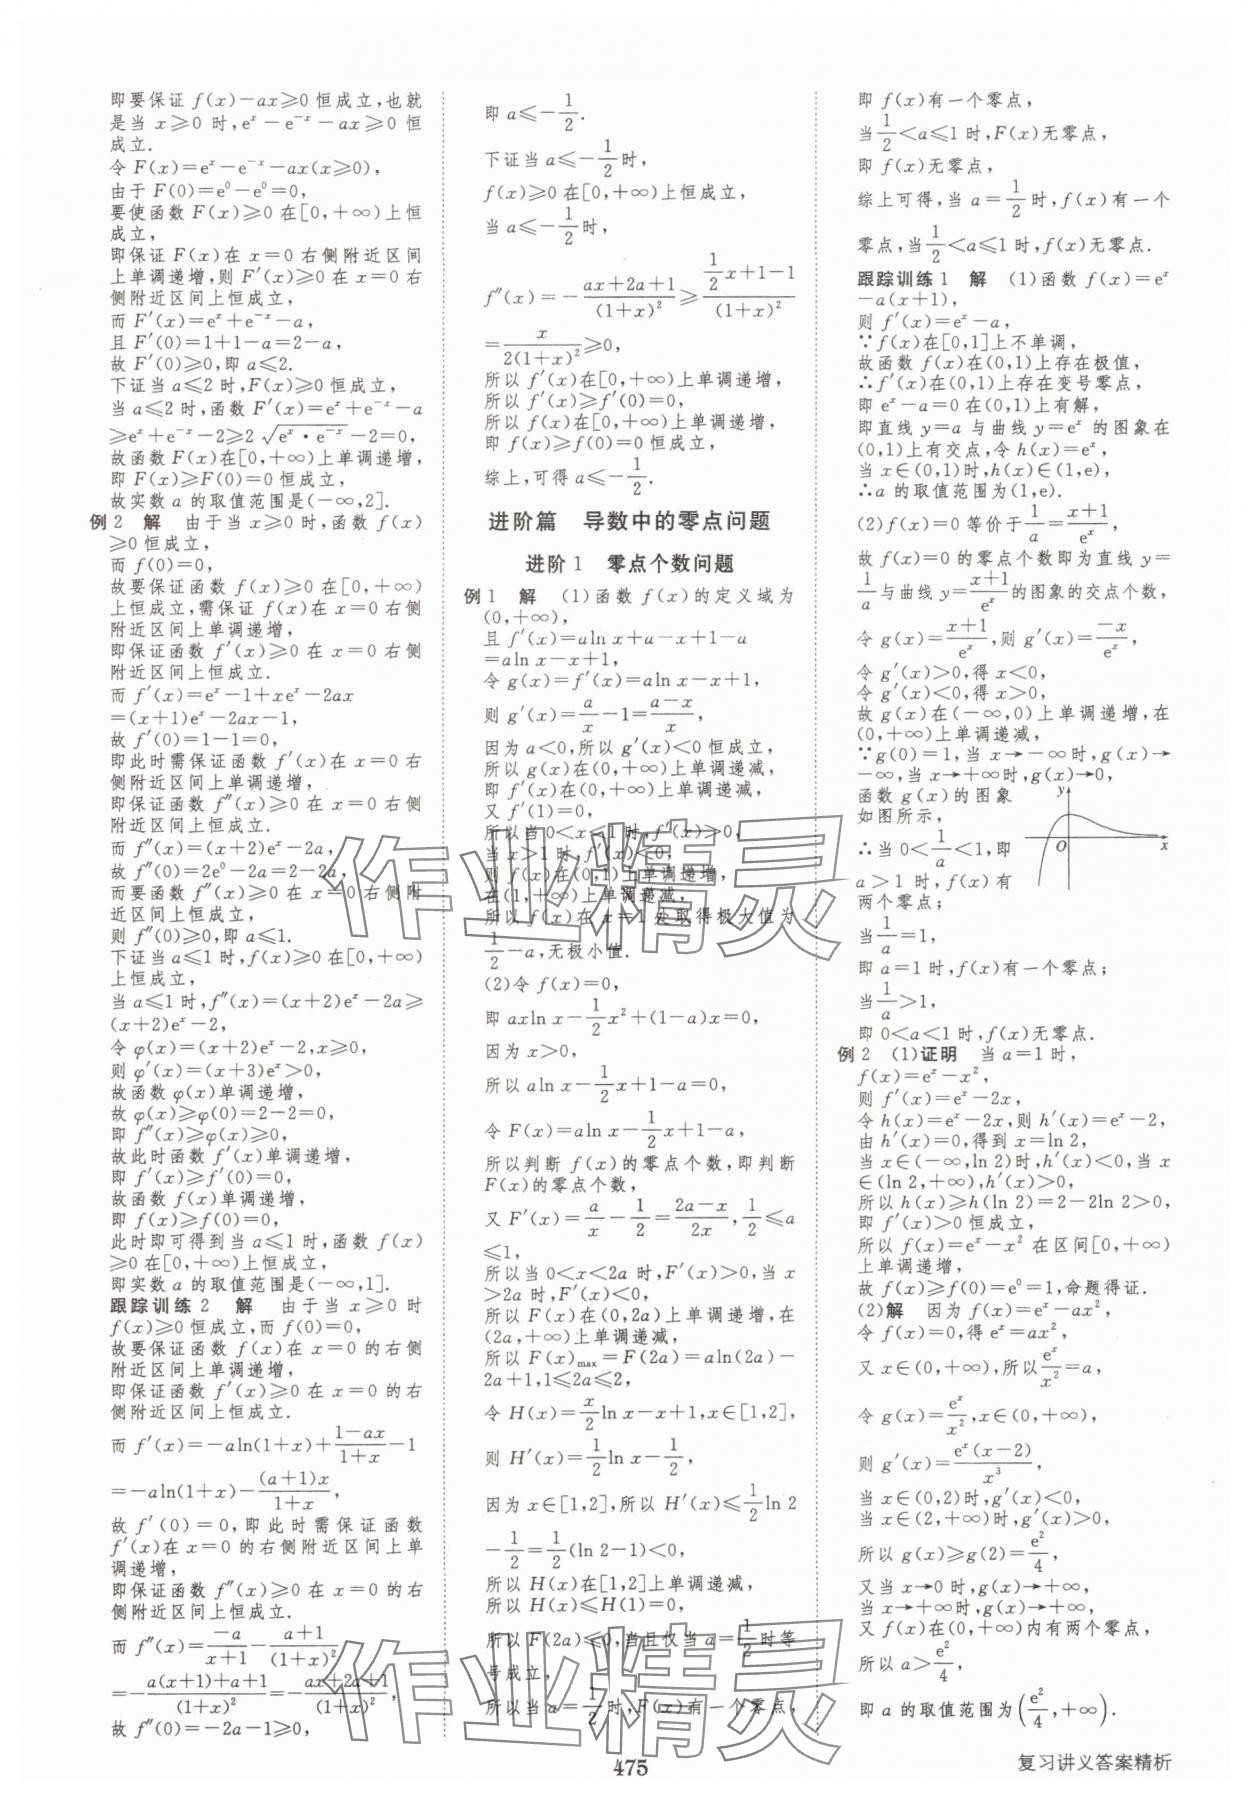 即要保证 f(x)-ax≥0 恒成立,也就
是当 x≥0 时,eˣ-e⁻ˣ-ax≥0 恒
成立.
令 F(x)=eˣ-e⁻ˣ-ax(x≥0),
由于 F(0)=e⁰-e⁰=0,
要使函数 F(x)≥0 在[0,+∞)上恒
成立,
即保证 F(x)在 x=0 右侧附近区间
上单调递增,则 F′(x)≥0 在 x=0 右
侧附近区间上恒成立,
而 F′(x)=eˣ+e⁻ˣ-a,
且 F′(0)=1+1-a=2-a,
故 F′(0)≥0,即 a≤2.
下证当 a≤2 时,F(x)≥0 恒成立,
当 a≤2 时,函数 F′(x)=eˣ+e⁻ˣ-a
≥eˣ+e⁻ˣ-2≥2√(eˣ·e⁻ˣ)-2=0,
故函数 F(x)在[0,+∞)上单调递增,
即 F(x)≥F(0)=0 恒成立,
故实数 a 的取值范围是(-∞,2].
例 2 解 由于当 x≥0 时,函数 f(x)
≥0 恒成立,
而 f(0)=0,
故要保证函数 f(x)≥0 在[0,+∞)
上恒成立,需保证 f(x)在 x=0 右侧
附近区间上单调递增,
即保证函数 f′(x)≥0 在 x=0 右侧
附近区间上恒成立.
而 f′(x)=eˣ-1+xeˣ-2ax
=(x+1)eˣ-2ax-1,
故 f′(0)=1-1=0,
即此时需保证函数 f′(x)在 x=0 右
侧附近区间上单调递增,
即保证函数 f″(x)≥0 在 x=0 右侧
附近区间上恒成立.
而 f″(x)=(x+2)eˣ-2a,
故 f″(0)=2e⁰-2a=2-2a,
而要函数 f″(x)≥0 在 x=0 右侧附
近区间上恒成立,
则 f″(0)≥0,即 a≤1.
下证当 a≤1 时,f(x)≥0 在[0,+∞)
上恒成立,
当 a≤1 时,f″(x)=(x+2)eˣ-2a≥
(x+2)eˣ-2,
令 φ(x)=(x+2)eˣ-2,x≥0,
则 φ′(x)=(x+3)eˣ>0,
故函数 φ(x)单调递增,
故 φ(x)≥φ(0)=2-2=0,
即 f″(x)≥φ(x)≥0,
故此时函数 f′(x)单调递增,
即 f′(x)≥f′(0)=0,
故函数 f(x)单调递增,
即 f(x)≥f(0)=0,
此时即可得到当 a≤1 时,函数 f(x)
≥0 在[0,+∞)上恒成立,
即实数 a 的取值范围是(-∞,1].
跟踪训练 2 解 由于当 x≥0 时
f(x)≥0 恒成立,而 f(0)=0,
故要保证函数 f(x)在 x=0 的右侧
附近区间上单调递增,
即保证函数 f′(x)≥0 在 x=0 的右
侧附近区间上恒成立.
而 f′(x)=-aln(1+x)+(1-ax)/(1+x)-1
=-aln(1+x)-(a+1)x/(1+x),
故 f′(0)=0,即此时需保证函数
f′(x)在 x=0 的右侧附近区间上单
调递增,
即保证函数 f″(x)≥0 在 x=0 的右
侧附近区间上恒成立.
而 f″(x)=-a/(x+1)-(a+1)/(1+x)²
=-(a(x+1)+a+1)/(1+x)²=-(ax+2a+1)/(1+x)²,
故 f″(0)=-2a-1≥0,
即 a≤-1/2.
下证当 a≤-1/2时,
f(x)≥0 在[0,+∞)上恒成立,
当 a≤-1/2时,
f″(x)=-(ax+2a+1)/(1+x)²≥(1/2x+1-1)/(1+x)²
=x/2(1+x)²≥0,
所以 f′(x)在[0,+∞)上单调递增,
所以 f′(x)≥f′(0)=0,
所以 f(x)在[0,+∞)上单调递增,
即 f(x)≥f(0)=0 恒成立,
综上,可得 a≤-1/2.
进阶篇 导数中的零点问题
进阶 1 零点个数问题
例 1 解 (1)函数 f(x)的定义域为
(0,+∞),
且 f′(x)=aln x+a-x+1-a
=aln x-x+1,
令 g(x)=f′(x)=aln x-x+1,
则 g′(x)=a/x-1=(a-x)/x,
因为 a<0,所以 g′(x)<0 恒成立,
所以 g(x)在(0,+∞)上单调递减,
即 f′(x)在(0,+∞)上单调递减,
又 f′(1)=0,
所以当 0<x<1 时,f′(x)>0,
当 x>1 时,f′(x)<0,
则 f(x)在(0,1)上单调递增,
在(1,+∞)上单调递减,
所以 f(x)在 x=1 处取得极大值为
1/2-a,无极小值.
(2)令 f(x)=0,
即 axln x-1/2x²+(1-a)x=0,
因为 x>0,
所以 aln x-1/2x+1-a=0,
令 F(x)=aln x-1/2x+1-a,
所以判断 f(x)的零点个数,即判断
F(x)的零点个数,
又 F′(x)=a/x-1/2=(2a-x)/2x,1/2≤a
≤1,
所以当 0<x<2a 时,F′(x)>0,当 x
>2a 时,F′(x)<0,
所以 F(x)在(0,2a)上单调递增,在
(2a,+∞)上单调递减,
所以 F(x)max=F(2a)=aln(2a)-
2a+1,1≤2a≤2,
令 H(x)=x/2ln x-x+1,x∈[1,2],
则 H′(x)=1/2ln x-1/2,
因为 x∈[1,2],所以 H′(x)≤1/2ln 2
-1/2=1/2(ln 2-1)<0,
所以 H(x)在[1,2]上单调递减,
所以 H(x)≤H(1)=0,
所以 F(2a)≤0,当且仅当 a=1/2时等
号成立,
所以当 a=1/2时,F(x)有一个零点,
即 f(x)有一个零点,
当1/2<a≤1 时,F(x)无零点,
即 f(x)无零点,
综上可得,当 a=1/2时,f(x)有一个
零点,当1/2<a≤1 时,f(x)无零点.
跟踪训练 1 解 (1)函数 f(x)=eˣ
-a(x+1),
则 f′(x)=eˣ-a,
∵f(x)在[0,1]上不单调,
故函数 f(x)在(0,1)上存在极值,
∴f′(x)在(0,1)上存在变号零点,
即 eˣ-a=0 在(0,1)上有解,
即直线 y=a 与曲线 y=eˣ 的图象在
(0,1)上有交点,令 h(x)=eˣ,
当 x∈(0,1)时,h(x)∈(1,e),
∴a 的取值范围为(1,e).
(2)f(x)=0 等价于1/a=(x+1)/eˣ,
故 f(x)=0 的零点个数即为直线 y=
1/a与曲线 y=(x+1)/eˣ的图象的交点个数,
令 g(x)=(x+1)/eˣ,则 g′(x)=-x/eˣ,
令 g′(x)>0,得 x<0,
令 g′(x)<0,得 x>0,
故 g(x)在(-∞,0)上单调递增,在
(0,+∞)上单调递减,
∵g(0)=1,当 x→-∞时,g(x)→
-∞,当 x→+∞时,g(x)→0,
函数 g(x)的图象
如图所示,
y
O
x
∴当 0<1/a<1,即
a>1 时,f(x)有
两个零点;
当1/a=1,
即 a=1 时,f(x)有一个零点;
当1/a>1,
即 0<a<1 时,f(x)无零点.
例 2 (1)证明 当 a=1 时,
f(x)=eˣ-x²,
则 f′(x)=eˣ-2x,
令 h(x)=eˣ-2x,则 h′(x)=eˣ-2,
由 h′(x)=0,得到 x=ln 2,
当 x∈(-∞,ln 2)时,h′(x)<0,当 x
∈(ln 2,+∞),h′(x)>0,
所以 h(x)≥h(ln 2)=2-2ln 2>0,
即 f′(x)>0 恒成立,
所以 f(x)=eˣ-x² 在区间[0,+∞)
上单调递增,
故 f(x)≥f(0)=e⁰=1,命题得证.
(2)解 因为 f(x)=eˣ-ax²,
令 f(x)=0,得 eˣ=ax²,
又 x∈(0,+∞),所以eˣ/x²=a,
令 g(x)=eˣ/x²,x∈(0,+∞),
则 g′(x)=eˣ(x-2)/x³,
当 x∈(0,2)时,g′(x)<0,
当 x∈(2,+∞)时,g′(x)>0,
所以 g(x)≥g(2)=e²/4,
又当 x→0 时,g(x)→+∞,
当 x→+∞时,g(x)→+∞,
又 f(x)在(0,+∞)内有两个零点,
所以 a>e²/4,
即 a 的取值范围为(e²/4,+∞).
作业精灵
作业精灵
475
复习讲义答案精析